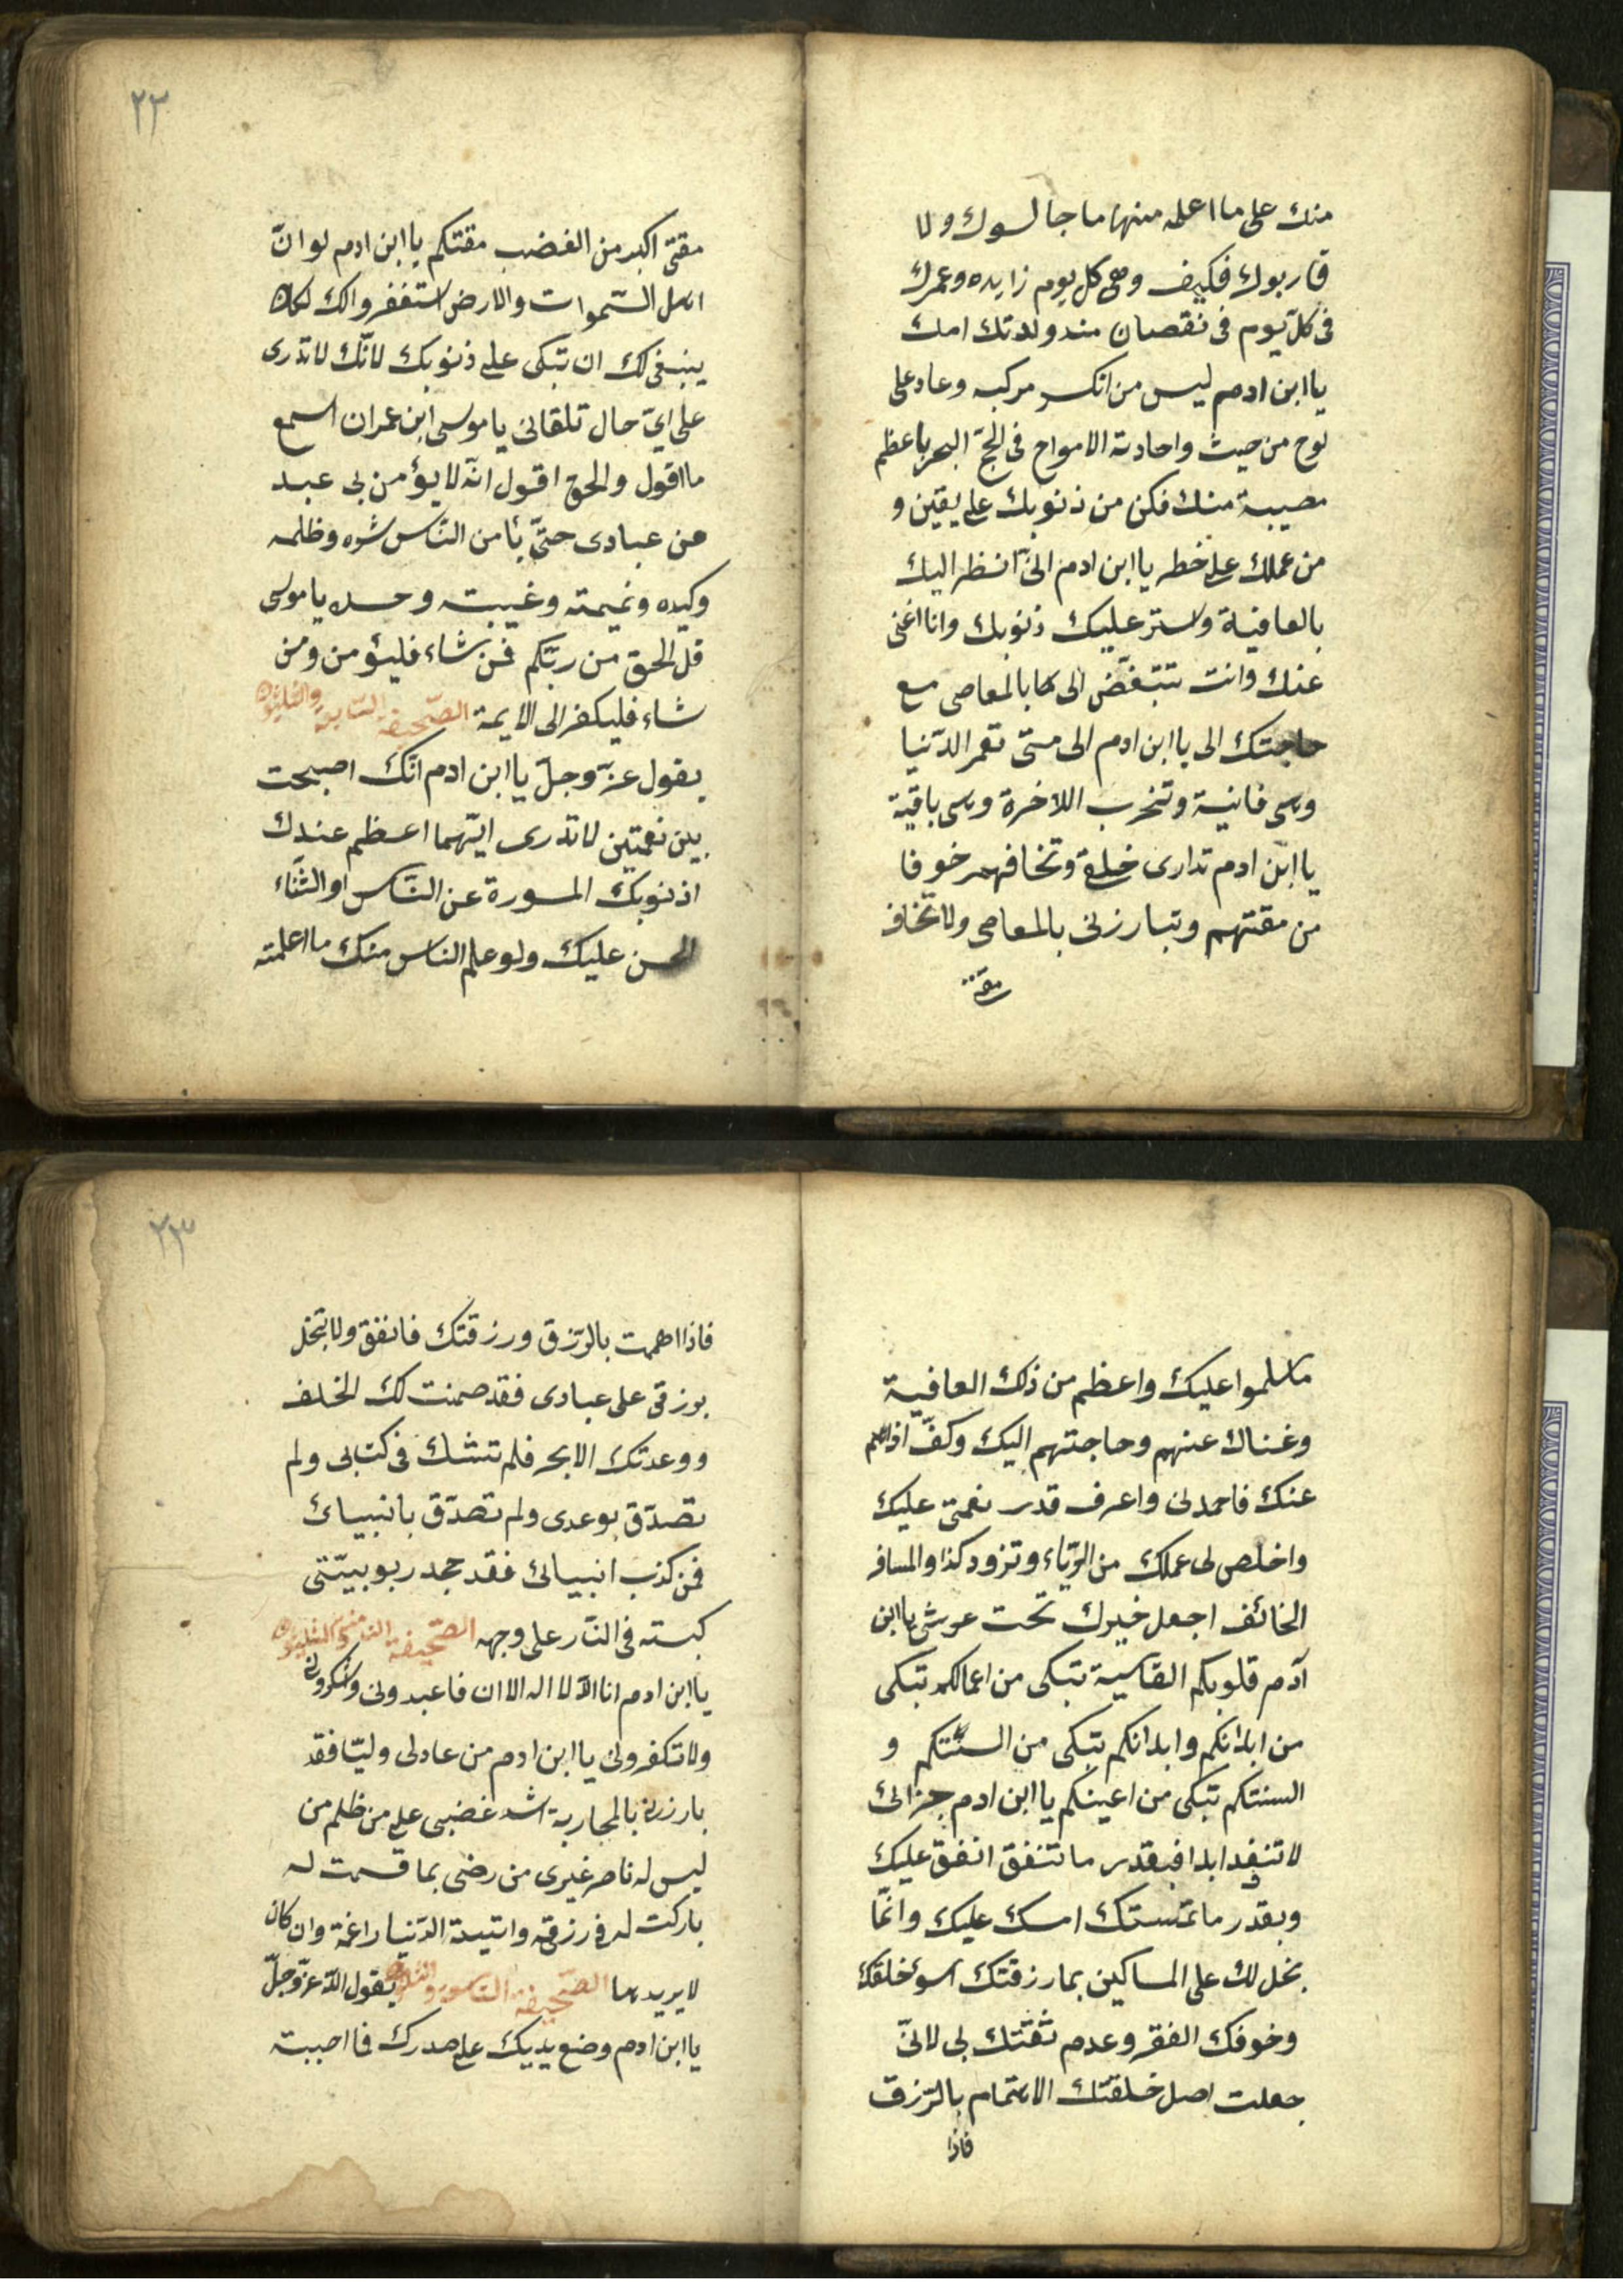 منك على ما اعلمه منها ما جالسوك ولا
قاربوك فكيف وهى كل يوم زايده وعمرك
فى كلّ يوم فى نقصان منذ ولدتك امك
يا ابن ادم ليس من انكسر مركبه وعاد على
لوح من حيث واحادته الامواج فى لجّ البحر باعظم
مصيبة منك فكن من ذنوبك على يقين و
من عملك على خطر يا ابن ادم انّى انظر اليك
بالعافية واستر عليك ذنوبك وانا اغنى
عنك وانت تتبغّض الى كما بالمعاصى مع
حاجتك الى يا ابن ادم الى متى تعمر الدّنيا
وهى فانية وتخرب اللاخرة وهى باقية
يا ابن ادم تدارى خلقى وتخافهم خوفا
من مقتهم وتبارزنى بالمعاصى ولا تخاف
مقتى
٢٢
مقتى اكبر من الغضب مقتكم يا ابن ادم لو انّ
اهل السّموات والارض استغفروا لك لكان
ينبغى لك ان تبكى على ذنوبك لانّك لا تدرى
على اىّ حال تلقانى يا موسى ابن عمران اسمع
ما اقول والحق اقول انّه لا يؤمن بى عبد
من عبادى حتّى يأمن النّاس شره وظلمه
وكيده ونميمته وغيبته وحسده يا موسى
قل الحق من ربّكم فمن شاء فليؤمن ومن
شاء فليكفر الى الاية الصّحيفة السّابعة والثلثون
يقول عزّ وجلّ يا ابن ادم انّك اصبحت
بين نعمتين لا تدرى ايّهما اعظم عندك
اذنوبك المسورة عن النّاس او الثّناء
الحسن عليك ولو علم الناس منك ما اعلمته
ما سلموا عليك واعظم من ذلك العافية
وغناك عنهم وحاجتهم اليك وكفّ اذاهم
عنك فاحمدنى واعرف قدر نعمتى عليك
واخلص لى عملك من الرّياء وتزود كذا والمسافر
الخائف اجعل خيرك تحت عرشى يا ابن
آدم قلوبكم القاسية تبكى من اعمالكم تبكى
من ابدانكم وابدانكم تبكى من السنتكم و
السنتكم تبكى من اعينكم يا ابن ادم خزائى
لا تنفد ابدا فبقدر ما تنفق انفق عليك
وبقدر ما تمسك امسك عليك وانّما
بخل لك على المساكين بما رزقتك اسوء خلقك
وخوفك الفقر وعدم ثقتك بى لانّى
جعلت اصل خلقتك الاهتمام بالرّزق
فاذا
٢٣
فاذا اهممت بالرّزق ورزقتك فانفق ولا تبخل
برزقى على عبادى فقد ضمنت لك الخلف
ووعدتك الاجر فلم تشك فى كتابى ولم
تصدّق بوعدى ولم تصدّق بانبيائ
فمن كذب انبيائ فقد جحد ربوبيّتى
كبيته فى النّار على وجهه الصّحيفة الثامنة والثلثون
يا ابن ادم انا اللّه لا اله الا انا فاعبدونى واشكرونى
ولا تكفرونى يا ابن ادم من عاد لى وليّا فقد
بارزنى بالمحاربة اشد غضبى على من ظلم من
ليس له ناصر غيرى من رضى بما قسمت له
باركت له فى رزقه واتيته الدّنيا راغمة وان كان
لا يريدها الصّحيفة التاسعة والثلثون يقول اللّه عزّ وجلّ
يا ابن ادم وضع يديك على صدرك فما احببته